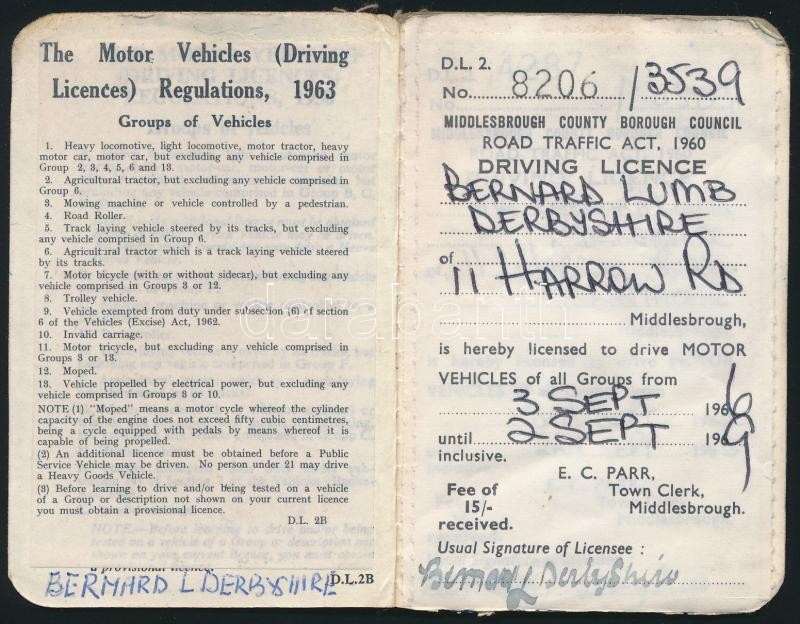 The Motor Vehicles (Driving
Licences) Regulations, 1963
Groups of Vehicles
1. Heavy locomotive, light locomotive, motor tractor, heavy
motor car, motor car, but excluding any vehicle comprised in
Group 2, 3, 4, 5, 6 and 13.
2. Agricultural tractor, but excluding any vehicle comprised in
Group 6.
3. Mowing machine or vehicle controlled by a pedestrian.
4. Road Roller.
5. Track laying vehicle steered by its tracks, but excluding
any vehicle comprised in Group 6.
6. Agricultural tractor which is a track laying vehicle steered
by its tracks.
7. Motor bicycle (with or without sidecar), but excluding any
vehicle comprised in Groups 3 or 12.
8. Trolley vehicle.
9. Vehicle exempted from duty under subsection (6) of section
6 of the Vehicles (Excise) Act, 1962.
10. Invalid carriage.
11. Motor tricycle, but excluding any vehicle comprised in
Groups 3 or 13.
12. Moped.
13. Vehicle propelled by electrical power, but excluding any
vehicle comprised in Groups 8 or 10.
NOTE (1) "Moped" means a motor cycle whereof the cylinder
capacity of the engine does not exceed fifty cubic centimetres,
being a cycle equipped with pedals by means whereof it is
capable of being propelled.
(2) An additional licence must be obtained before a Public
Service Vehicle may be driven. No person under 21 may drive
a Heavy Goods Vehicle.
(3) Before learning to drive and/or being tested on a vehicle
of a Group or description not shown on your current licence
you must obtain a provisional licence.
D.L. 2B
a provisional licence.
D.L.2B
BERNARD L DERBYSHIRE
D.L. 2.
No. 8206 / 3539
MIDDLESBROUGH COUNTY BOROUGH COUNCIL
ROAD TRAFFIC ACT, 1960
DRIVING LICENCE
BERNARD LUMB
DERBYSHIRE
of 11 HARROW RD
Middlesbrough,
is hereby licensed to drive MOTOR
VEHICLES of all Groups from
3 SEPT 1966
until 2 SEPT 1969
inclusive.
E. C. PARR,
Town Clerk,
Middlesbrough.
Fee of
15/-
received.
Usual Signature of Licensee :
Bernard Derbyshire
darabanth